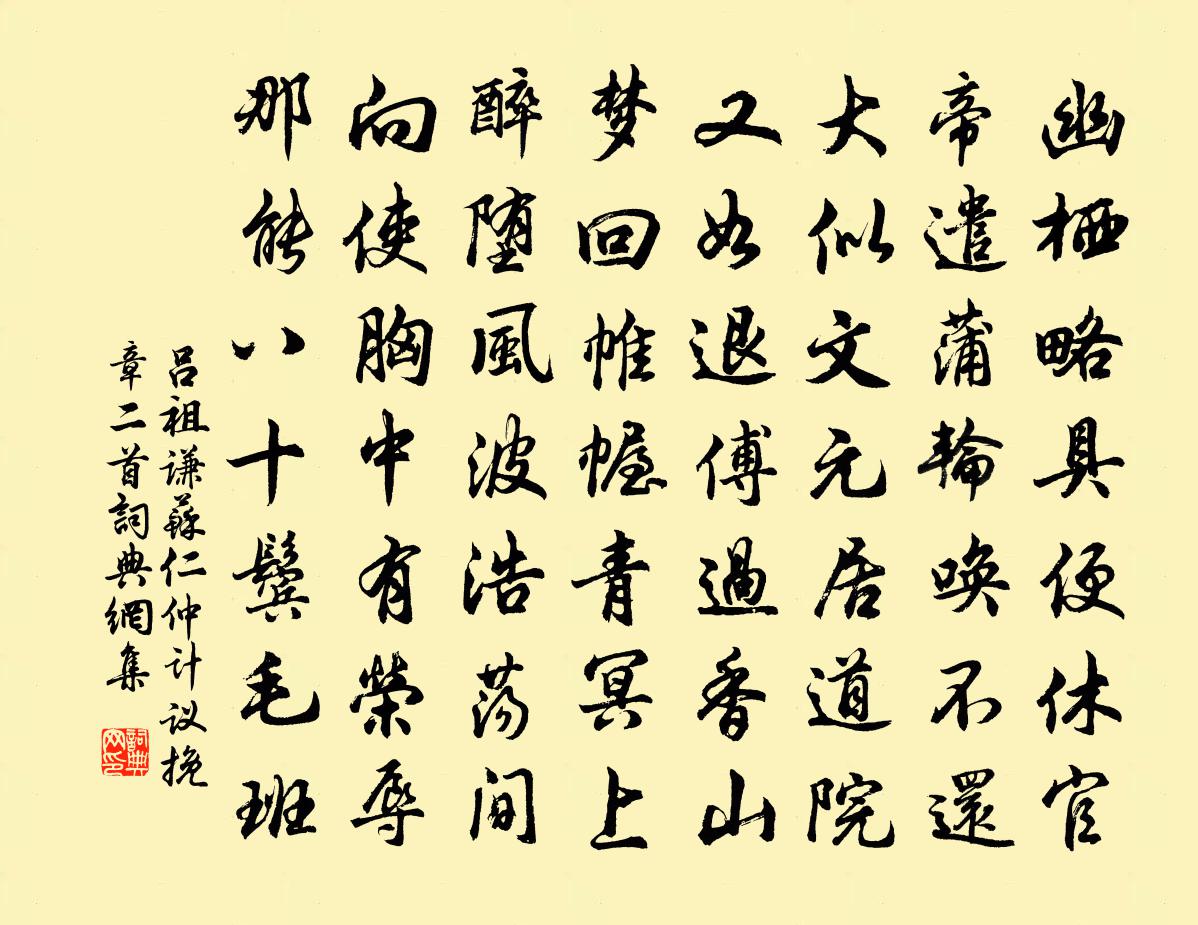 幽栖略具便休官
帝遣蒲輪唤不還
大似文元居道院
又如退傅過香山
梦回帷幄青冥上
醉堕風波浩荡間
向使胸中有榮辱
那能八十鬓毛班
吕祖谦蘇仁仲计议挽
章二首詞典網集
詞典
网印